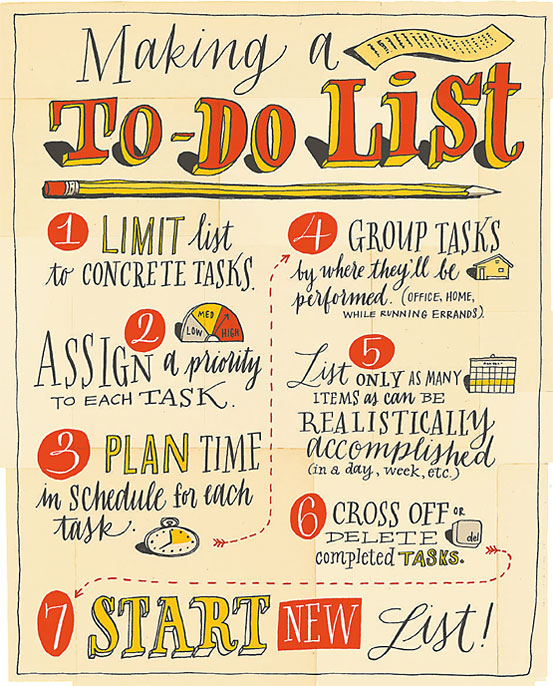 Making a
TO-DO LiST
1 LIMIT list
to CONCRETE TASKS.
2 LOW MED HIGH
ASSIGN a priority
TO EACH TASK.
3 PLAN TIME
in SCHEDULE for each
task.
4 GROUP TASKS
by where they'll be
performed. (OFFICE, HOME,
WHILE RUNNING ERRANDS).
5
List ONLY AS MANY
ITEMS as can BE
REALISTICALLY
accomplished
(in a day, week, etc.)
6 CROSS OFF OR
DELETE del
completed TASKS.
7 START NEW List!